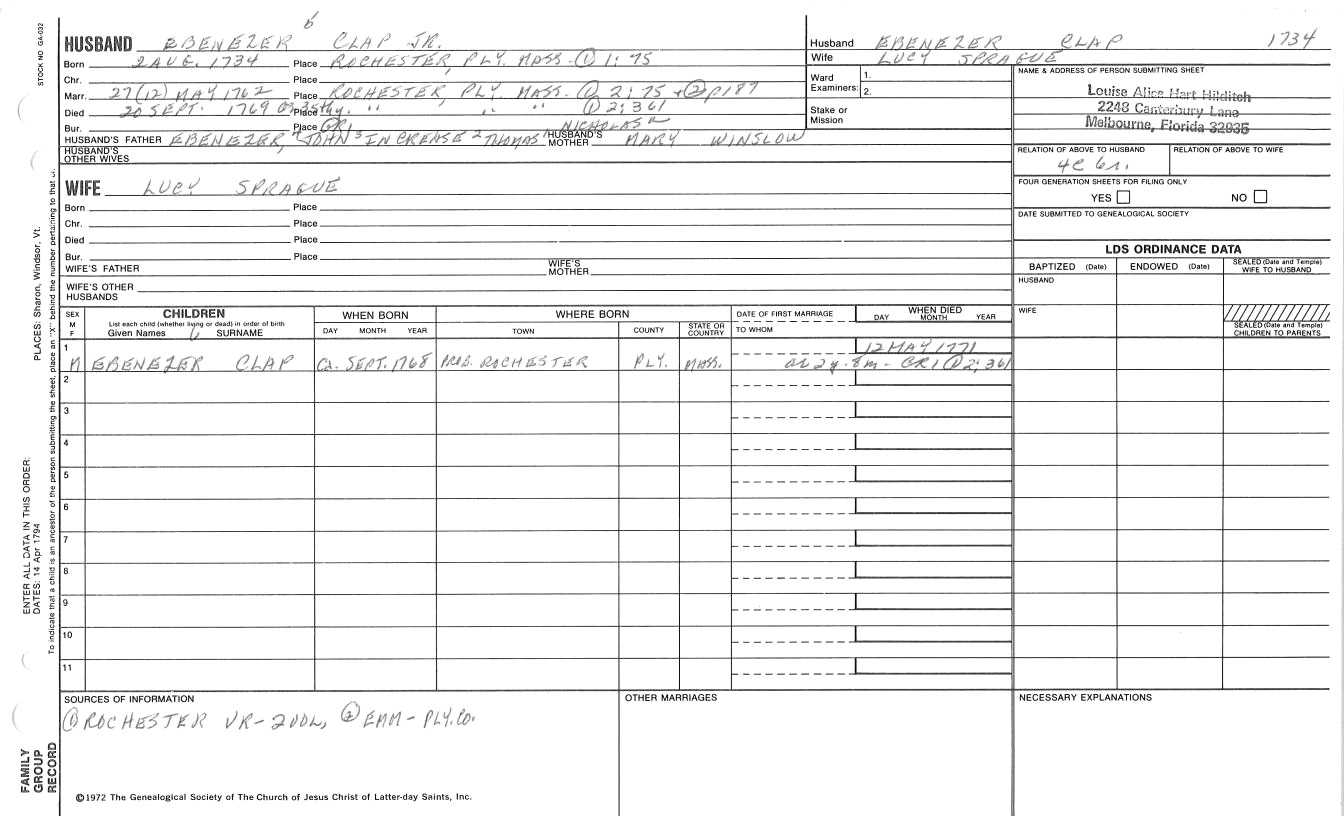 STOCK NO GA-032
5
HUSBAND EBENEZER CLAP JR.
Born 2 AUG. 1734 Place ROCHESTER, PLY. MASS - ① 1; 75
Chr. Place
Marr. 27(12) MAY 1762 Place ROCHESTER, PLY. MASS. ① 2; 75 + ② p 187
Died 20 SEPT. 1769 Place " " " ① 2; 361
Bur. Place NICHOLAS
HUSBAND'S FATHER EBENEZER, 4 JOHN 3 INCREASE 2 THOMAS 1 HUSBAND'S MOTHER MARY WINSLOW
HUSBAND'S OTHER WIVES
WIFE LUCY SPRAGUE
Born Place
Chr. Place
Died Place
Bur. Place
WIFE'S FATHER WIFE'S MOTHER
WIFE'S OTHER HUSBANDS
Husband EBENEZER CLAP 1734
Wife LUCY SPRAGUE
Ward Examiners: 1.
2.
Stake or Mission
NAME & ADDRESS OF PERSON SUBMITTING SHEET
Louise Alice Hart Hilditch
2248 Canterbury Lane
Melbourne, Florida 32935
RELATION OF ABOVE TO HUSBAND RELATION OF ABOVE TO WIFE
4C 6r.
FOUR GENERATION SHEETS FOR FILING ONLY
YES NO
DATE SUBMITTED TO GENEALOGICAL SOCIETY
LDS ORDINANCE DATA
BAPTIZED (Date) ENDOWED (Date) SEALED (Date and Temple) WIFE TO HUSBAND
HUSBAND
WIFE
SEALED (Date and Temple) CHILDREN TO PARENTS
SEX M F
CHILDREN
List each child (whether living or dead) in order of birth
Given Names 6 SURNAME
WHEN BORN
DAY MONTH YEAR
WHERE BORN
TOWN COUNTY STATE OR COUNTRY
DATE OF FIRST MARRIAGE
TO WHOM
WHEN DIED
DAY MONTH YEAR
1 12 MAY 1771
M EBENEZER CLAP Ca. SEPT. 1768 PROB. ROCHESTER PLY. MASS. ae 2y. 8m - GR1 ① 2; 361
2
3
4
5
6
7
8
9
10
11
SOURCES OF INFORMATION
① ROCHESTER VR - 2 VOL, ② EMM - PLY. CO.
OTHER MARRIAGES
NECESSARY EXPLANATIONS
©1972 The Genealogical Society of The Church of Jesus Christ of Latter-day Saints, Inc.
FAMILY GROUP RECORD
ENTER ALL DATA IN THIS ORDER:
DATES: 14 Apr 1794
PLACES: Sharon, Windsor, Vt.
To indicate that a child is an ancestor of the person submitting the sheet, place an "X" behind the number pertaining to that